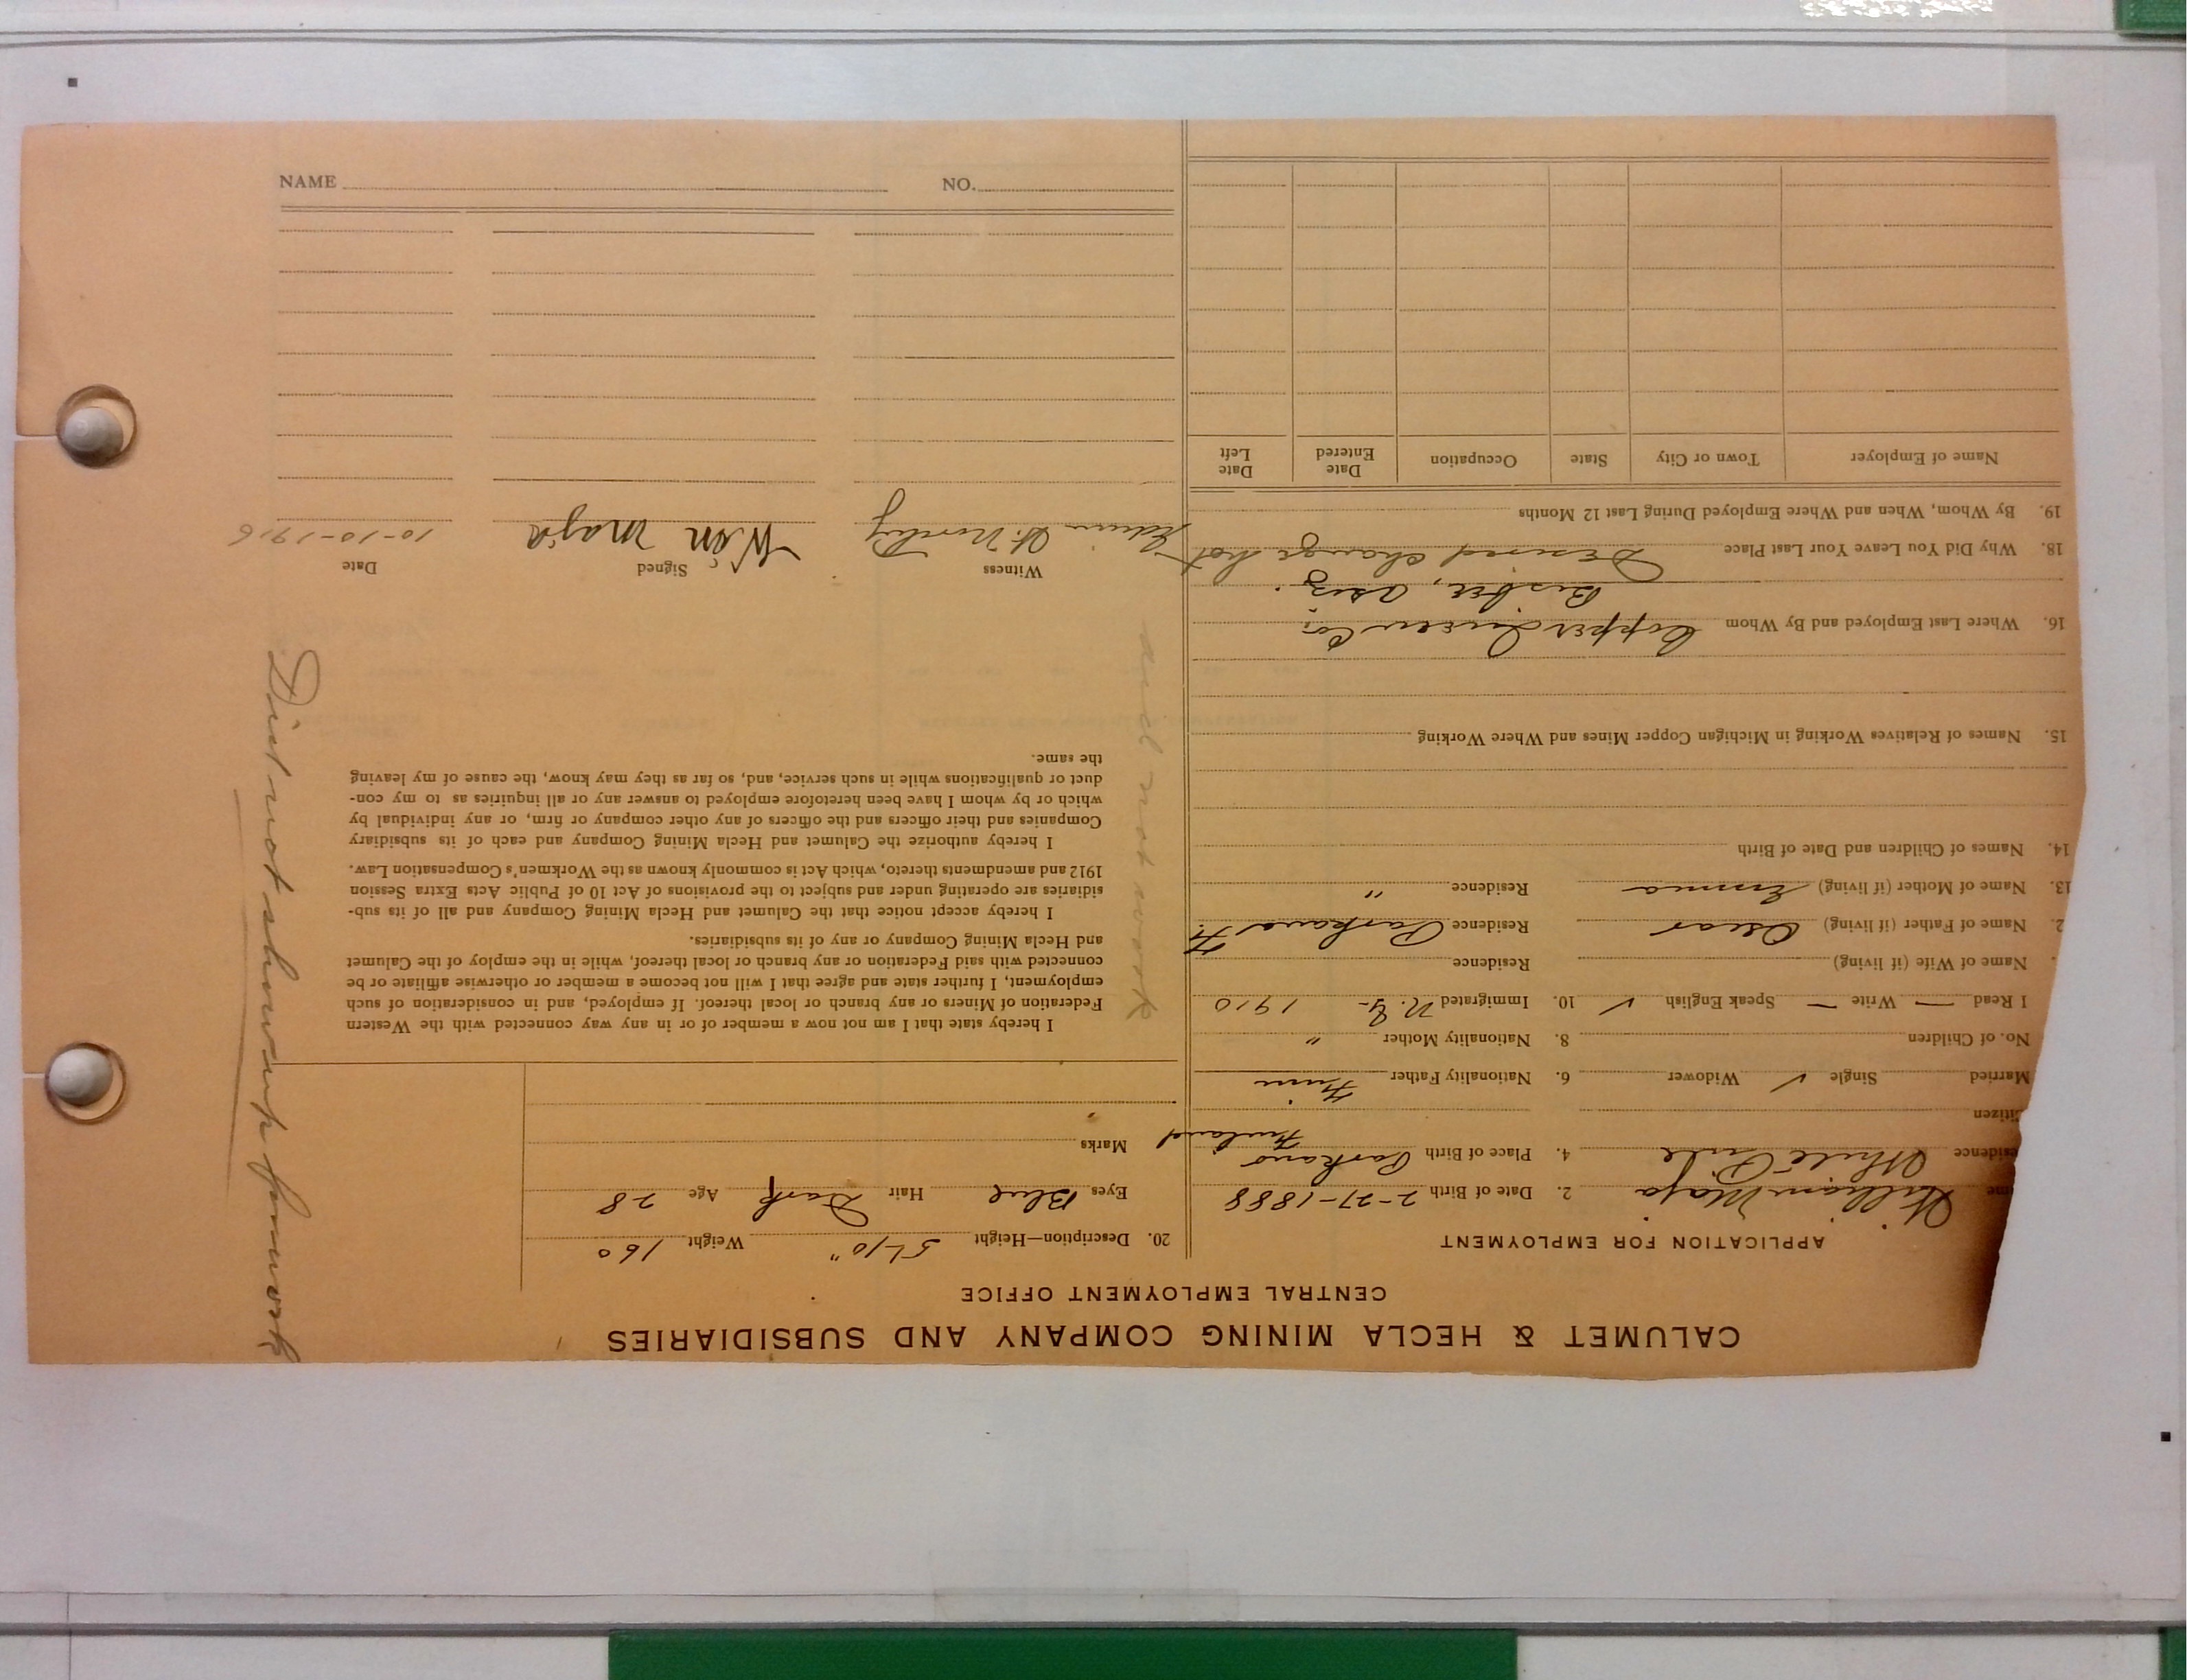 CALUMET & HECLA MINING COMPANY AND SUBSIDIARIES
CENTRAL EMPLOYMENT OFFICE
APPLICATION FOR EMPLOYMENT
me William Maja 2. Date of Birth 2-27-1888
sidence White Pine 4. Place of Birth Parkano Finland
itizen
Married Single ✓ Widower 6. Nationality Father Finn
No. of Children 8. Nationality Mother "
I Read — Write — Speak English ✓ 10. Immigrated N.Y- 1910
Name of Wife (if living) Residence
2. Name of Father (if living) Oscar Residence Parkano
13. Name of Mother (if living) Emma Residence "
14. Names of Children and Date of Birth
15. Names of Relatives Working in Michigan Copper Mines and Where Working
16. Where Last Employed and By Whom Copper Queen Co.
Bisbee, Ariz.
18. Why Did You Leave Your Last Place Desired change hot
19. By Whom, When and Where Employed During Last 12 Months
Name of Employer Town or City State Occupation Date Entered Date Left
20. Description—Height 5'-10" Weight 160
Eyes Blue Hair Dark Age 28
Marks
I hereby state that I am not now a member of or in any way connected with the Western
Federation of Miners or any branch or local thereof. If employed, and in consideration of such
employment, I further state and agree that I will not become a member or otherwise affiliate or be
connected with said Federation or any branch or local thereof, while in the employ of the Calumet
and Hecla Mining Company or any of its subsidiaries.
I hereby accept notice that the Calumet and Hecla Mining Company and all of its sub-
sidiaries are operating under and subject to the provisions of Act 10 of Public Acts Extra Session
1912 and amendments thereto, which Act is commonly known as the Workmen's Compensation Law.
I hereby authorize the Calumet and Hecla Mining Company and each of its subsidiary
Companies and their officers and the officers of any other company or firm, or any individual by
which or by whom I have been heretofore employed to answer any or all inquiries as to my con-
duct or qualifications while in such service, and, so far as they may know, the cause of my leaving
the same.
Witness Signed Date
Wm Maja 10-10-1916
Did not show up for work
did not work
NAME NO.